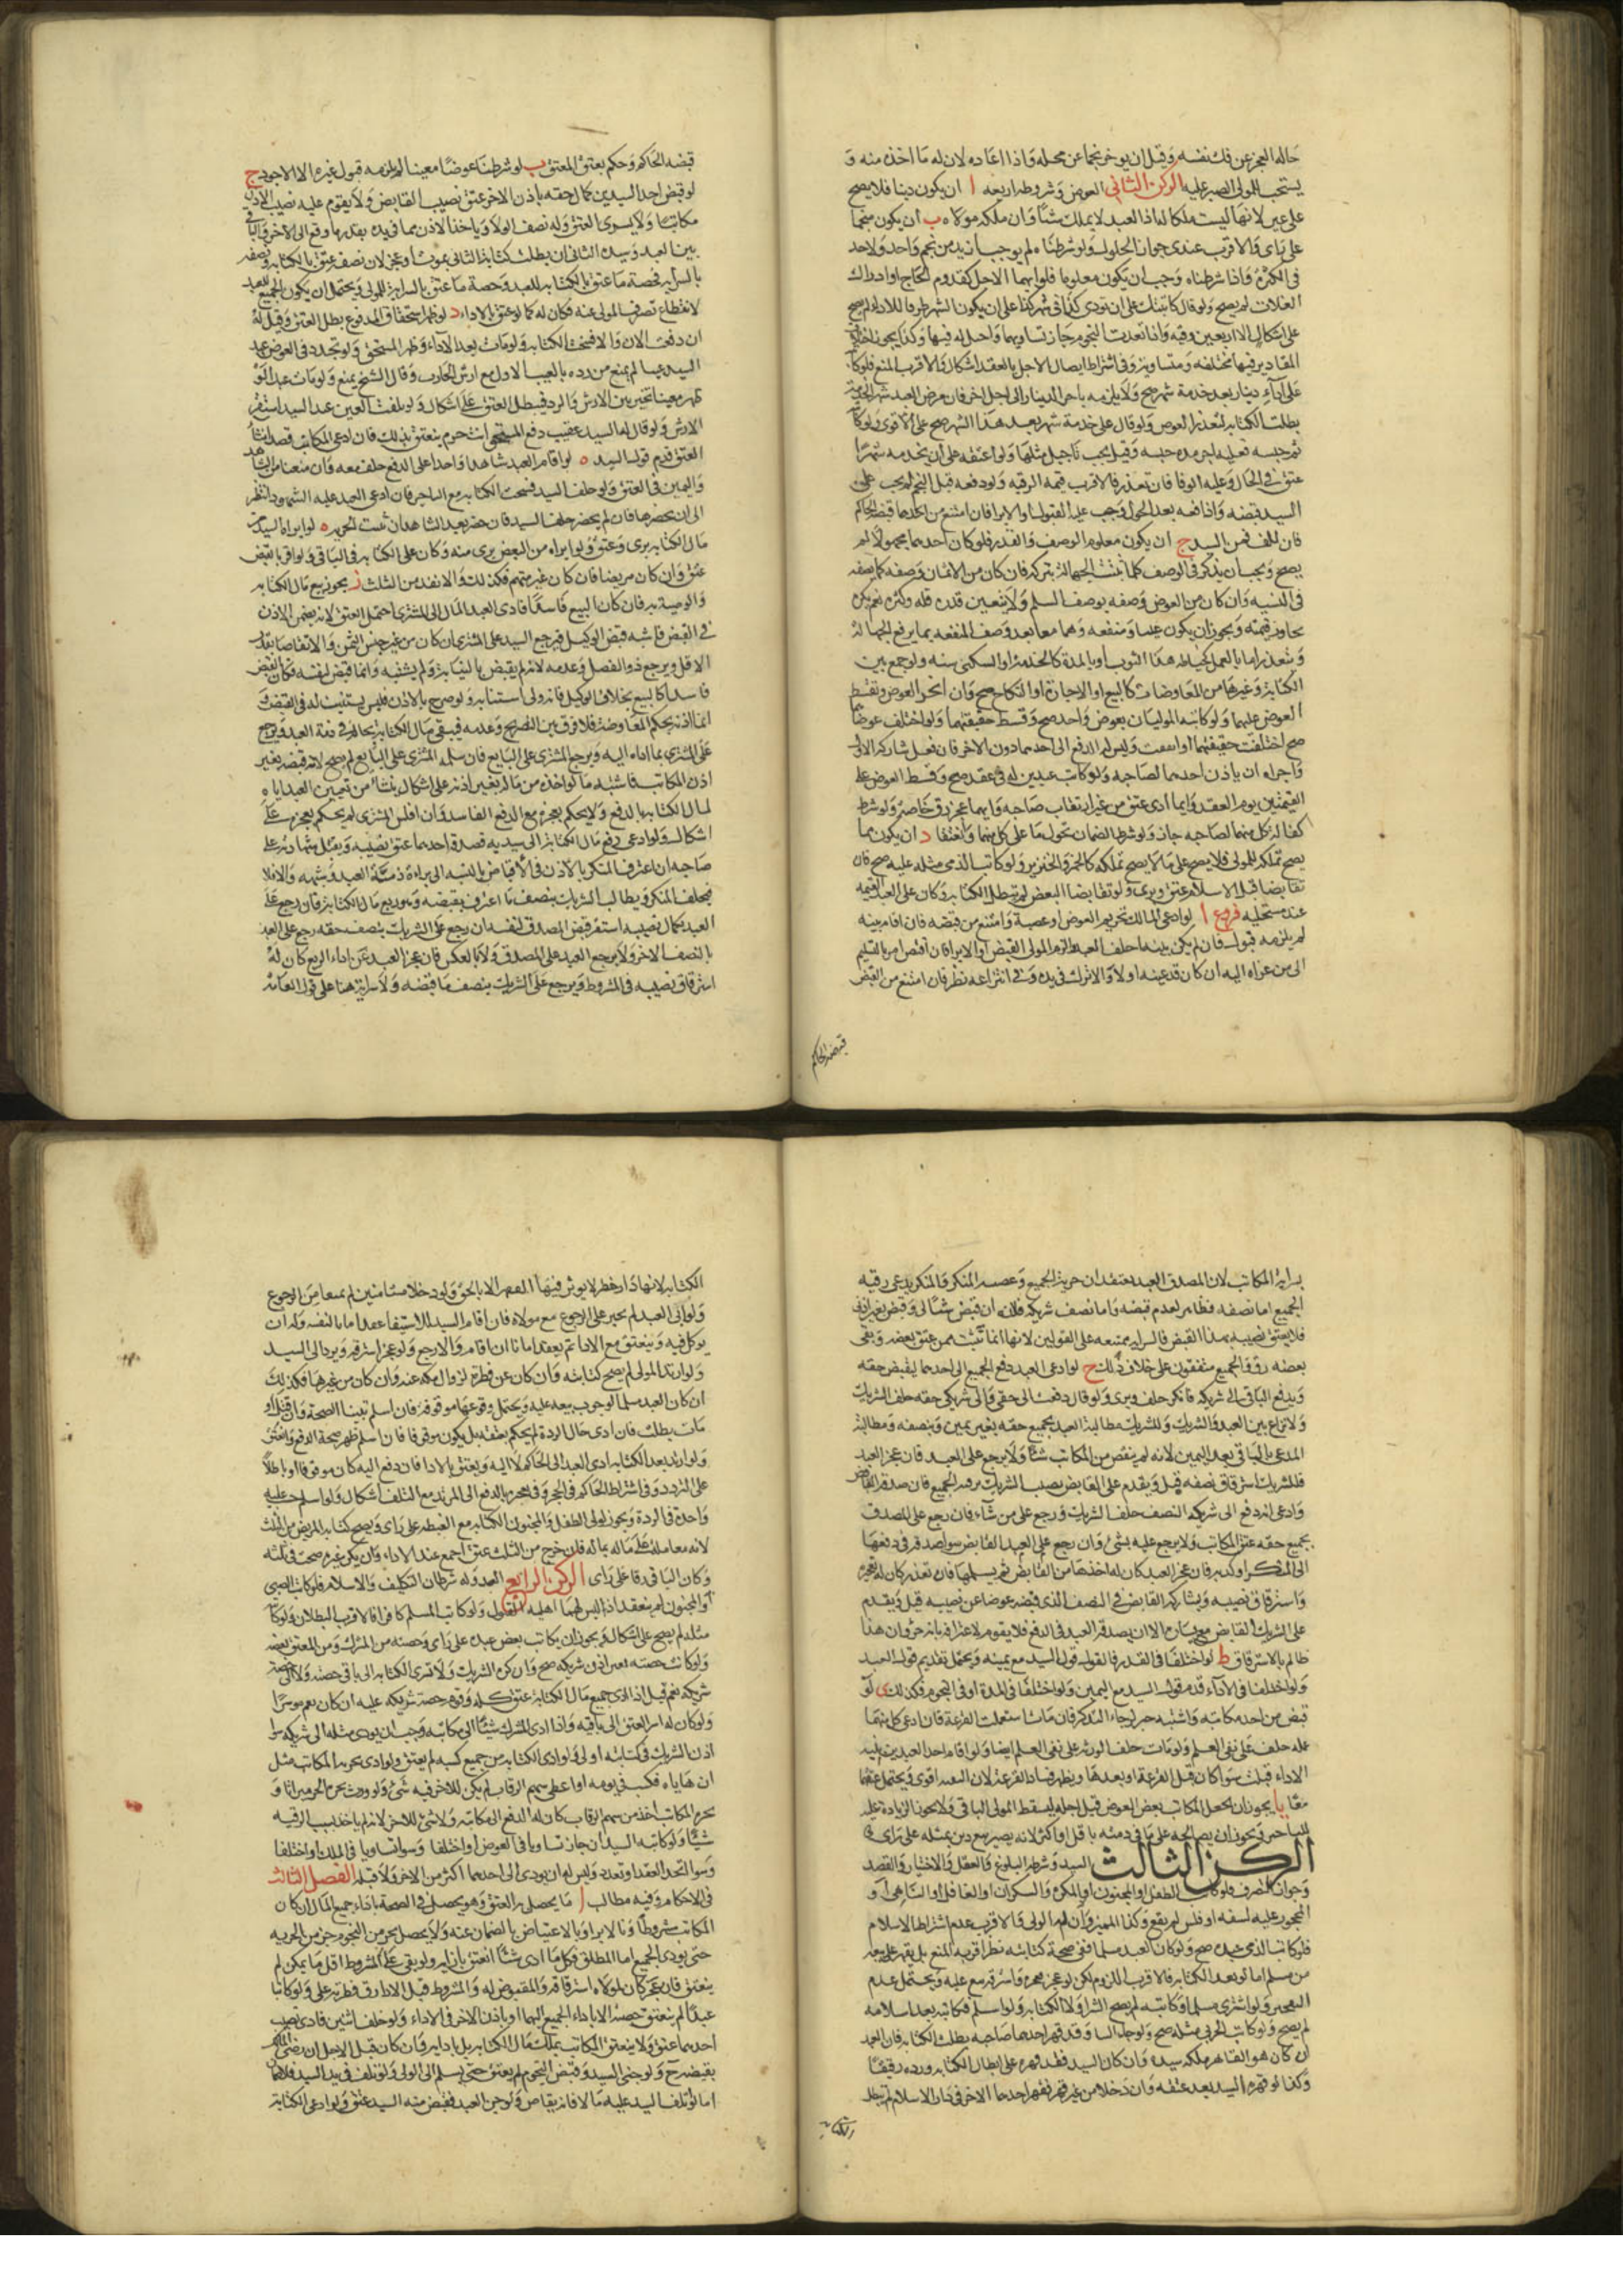 حاله العجز عن فك نفسه وقيل ان يوخر نجما عن محله واذا اعاده لان له ما اخذه منه و
يستحب للمولى الصبر عليه الركن الثاني العوض وشروطه اربعة ا ان يكون دينا فلا يصح
على عين لانها ليست ملكا له اذ العبد لا يملك شيئا وان ملكه مولاه ب ان يكون منجما
على راى والاقرب عندى جواز الحلول ولو شرطناه لم يوجب ازيد من نجم واحد ولا حد
فى الكثرة واذا شرطناه وجب ان يكون معلوما فلو ابهما الاجل كقدوم الحاج او ادراك
الغلات لم يصح ولو قال كاتبتك على ان تودى كذا فى شهر كذا على ان يكون الشهر ظرفا للاداء لم يصح
المقادير فيها مختلفه ومتساويه وفى اشتراط ايصال الاجل بالعقد اشكال والاقرب المنع فلو كاتبه
على اداء دينار بعد خدمة شهر صح ولا يلزمه تاخير الدينار الى اجل اخر فان مرض العبد شهر الخدمة
بطلت الكتابه لتعذر العوض ولو قال على خدمة شهر بعد هذا الشهر صح على الاقوى ولو كاتبه
ثم حبسه فعليه اجرة مدة حبسه وقيل يجب تاجيل مثلها ولو اعتقه على ان يخدمه شهرا
عتق فى الحال وعليه الوفا فان تعذر فالاقرب قيمة الرقبه ولو دفعه قبل النجم لم يجب على
السيد قبضه واذا دفعه بعد الحلول وجب عليه القبول او الابرا فان امتنع من احدهما قبضه الحاكم
فان تلف فمن السيد ج ان يكون معلوم الوصف والقدر فلو كان احدهما مجهولا لم
يصح ويجب ان يذكر فى الوصف كلما تثبت الجهالة بتركه فان كان من الاثمان وصفه كما يصفه
فى النسيه وان كان من العوض وصفه بوصف السلم ولا يتعين قدره قله وكثره نعم يكره
تجاوز قيمته ويجوز ان يكون عينا ومنفعه وهما معا بعد وصف المنفعه بما يرفع الجهالة
الكتابة وغيرها من المعاوضات كالبيع او الاجارة او النكاح صح وان اتحد العوض وتقسط
العوض عليهما ولو كاتبه الموليان بعوض واحد صح وقسط
صح اختلفت حقيقتهما او اتفقت وليس له الدفع الى احدهما دون الاخر فان فعل شاركه الاخر
واجزاه ان ياذن احدهما لصاحبه ولو كاتب عبدين له فى عقد صح وقسط العوض على
القيمتين يوم العقد وايما ادى عتق من غير ارتقاب صاحبه وايهما عجز رق خاصه ولو شرط
كفالة كل منهما لصاحبه جاز ولو شرط الضمان تحول ما على كل منهما وانعتقا د ان يكون مما
يصح تملكه للمولى فلا يصح على ما لا يصح تملكه كالخمر والخنزير ولو كاتب الذمى مثله عليه صح فان
تقابضا قبل الاسلام عتق وبرى ولو تقابضا البعض لم تبطل الكتابه وكان على العبد القيمه
عند مستحليه فروع ا لو ادعى المالك تحريم العوض او غصبه وامتنع من قبضه فان اقام بينه
لم يلزمه قبوله فان لم يكن بينه احلف العبد والزم المولى القبض او الابرا
الى من عزاه اليه ان كان قد عينه اولا والا ترك فى يده وفى انتزاعه نظر فان امتنع من القبض
قبضه الحاكم
قبضه الحاكم وحكم بعتق المعتق ب لو شرطنا عوضا معينا لم يلزمه قبول غيره الا الاجود ج
لو قبض احد السيدين كمال حقه باذن الاخر عتق نصيب القابض ولا يقوم عليه نصيب الاذن
بين العبد وسيده الثانى ان بطلت كتابة الثانى بموت او عجز لان نصفه عتق بالكتابه ونصفه
بالسرايه فحصة ما عتق بالكتابه للعبد وحصة ما عتق بالسراية للمولى ويحتمل ان يكون الجميع للعبد
لانقطاع تصرف المولى عنه فكان له كما لو عتق بالاداء د لو ظهر استحقاق المدفوع بطل العتق وقيل له
ان دفعت الان والا فسخت الكتابه ولو مات بعد الاداء وظهر المستحق ولو تجدد فى العوض عند
السيد عيب لم يمنع من رده بالعيب الاول مع ارش الحادث وقال الشيخ يمنع ولو مات عبدا
العتق قدم قول السيد ه لو اقام العبد شاهدا واحدا على الدفع حلف معه
مال الكتابه برى وعتق ولو ابراه من البعض برى منه وكان على الكتابه فى الباقى ولو اقر بالقبض
عتق وان كان مريضا فان كان غير متهم فكذلك والا نفذ من الثلث ز يجوز بيع مال الكتابه
والوصية به فان كان البيع فاسدا فادى العبد المال الى المشترى احتمل العتق لانه يضمن الاذن
فى القبض فاشبه قبض الوكيل فيرجع السيد على المشترى ان كان من غير جنس الثمن والا تقاصا بقدر
الاقل ويرجع ذو الفضل وعدمه لانه لم يقبض بالنيابة ولم يشبه وانما قبض لنفسه وكان القبض
فاسدا كالبيع بخلاف الوكيل فانه ولى استنابه ولو صرح بالاذن فليس يستنيب له فى القبض
انما اذنه بحكم المعاوضة فلا فرق بين التصريح وعدمه فيبقى مال الكتابة بحاله فى ذمة العبد ويرجع
على المشترى بما اداه اليه ويرجع المشترى على البايع فان سلمه المشترى على البايع لم يصح لانه قبضه بغير
اذن المكاتب فاشبه ما لو اخذه من ماله بغير اذنه على اشكال ينشأ من تعيين العبد اياه
لمال الكتابه بالدفع ولا يحكم بعجزه مع الدفع الفاسد وان افلس المشترى لم يحكم بعجزه على
اشكال ولو ادعى دفع مال الكتابة الى سيديه فصدقه احدهما عتق نصيبه ويقبل شهادته على
فيحلف المنكر ويطالب الشريك بنصف ما اعترف بقبضه وهو ربع مال الكتابة فان رجع على
العبد بكمال نصيبه استقر قبض المصدق لنفسه وان رجع على الشريك بنصف حقه رجع على العبد
بالنصف الاخر ولا يرجع العبد على المصدق ولا بالعكس فان عجز العبد عن اداء الربع كان له
استرقاق نصيبه فى المشروط ويرجع على الشريك بنصف ما قبضه ولا سراية هنا على قول العامه
بسراية المكاتب لان المصدق والعبد يعتقدان حرية الجميع وغصبيه المنكر والمنكر يدعى رقيه
الجميع اما نصفه فظاهر لعدم قبضه واما نصف شريكه فلانه ان قبض شيئا لى وقبض بغير اذنى
فلا يعتق نصيبه بهذا القبض فالسرايه ممتنعه على القولين لانها انما تثبت فيمن عتق بعضه وبقى
بعضه رق والجميع متفقون على خلاف ذلك ح لو ادعى العبد دفع الجميع الى احدهما ليقبض حقه
ويدفع الباقى الى شريكه فانكر حلف وبرى ولو قال دفعت الى حقى والى شريكى حقه حلف الشريك
ولا نزاع بين العبد والشريك وللشريك مطالبة العبد بجميع حقه بغير يمين وبنصفه ومطالبة
المدعى بالباقى بعد اليمين لانه لم ينقص من المكاتب شيئا ولا يرجع على العبد فان عجز العبد
وادعى انه دفع الى شريكه النصف حلف الشريك ورجع على من شاء فان رجع على المصدق
بجميع حقه عتق المكاتب ولا يرجع عليه بشئ وان رجع على العبد فالقابض سوا صدقه فى دفعها
الى المنكر او كذبه فان عجز العبد كان له اخذها من القابض ثم يسلمها فان تعذر كان له تعجيزه
واسترقاق نصيبه ويشاركه القابض فى النصف الذى قبضه عوضا عن نصيبه قيل ويقدم
على الشريك القابض مع يساره الا ان يصدق العبد فى الدفع فلا يقوم لاعترافه بانه حر وان هذا
ظالم بالاسترقاق ط لو اختلفا فى القدر فالقول قول السيد مع يمينه ويحتمل تقديم قول العبد
ولو اختلفا فى الاداء قدم قول السيد مع اليمين ولو اختلفا فى المدة او فى النجوم فكذلك ى لو
قبض من احد مكاتبيه واشتبه صبر لرجاء التذكر فان مات استعملت القرعة فان ادعى كل منهما
علمه حلف على نفى العلم ولو مات حلف الورثه على نفى العلم ايضا ولو اقام احد العبدين بينه
معا يا يجوز ان يعجل المكاتب بعض العوض قبل اجله ليسقط المولى الباقى ولا يجوز الزيادة عليه
للتاخير ويجوز ان يصالحه على ما فى ذمته باقل او اكثر لانه يصير بيع دين بمثله على راى
الركن الثالث السيد وشرطه البلوغ والعقل والاختيار والقصد
وجواز التصرف فلو كاتب الطفل او المجنون او المكره والسكران او الغافل او الساهى او
المحجور عليه لسفه او فلس لم يقع وكذا المميز وان اذن له الولى والاقرب عدم اشتراط الاسلام
فلو كاتب الذمى عبده صح ولو كان العبد مسلما ففى صحة كتابته نظر اقربه المنع بل يقهر على بيعه
من مسلم اما لو بعد الكتابه فالاقرب اللزوم لكن لو عجز فعجزه واسترقه بيع عليه ويحتمل عدم
التعجيز ولو اشترى مسلما وكاتبه لم يصح الشرا ولا الكتابه ولو اسلم فكاتبه بعد اسلامه
لم يصح ولو كاتب الحربى مثله صح ولو جاء الينا وقد قهر احدهما صاحبه بطلت الكتابه فان العبد
ان كان هو القاهر ملكه سيده وان كان السيد فقد قهره على ابطال الكتابه ورده رقيقا
وكذا لو قهره السيد بعد عتقه وان دخلا من غير قهر فقهر احدهما الاخر فى دار الاسلام لم تبطل
الكتابه
الكتابه لانها دار حظر لا يوثر فيها القهر الا بالحق ولو دخلا مستامنين لم يمنعا من الرجوع
ولو ابى العبد لم يجبر على الرجوع مع مولاه فان اقام السيد للاستيفا عقد امانا لنفسه وله ان
يوكل فيه وينعتق مع الاداء ثم يعقد امانا ان اقام والا رجع ولو عجز استرقه ويرد الى السيد
ولو ارتد المولى لم يصح كتابته وان كان عن فطرة لزوال ملكه عنه وان كان من غيرها فكذلك
ان كان العبد مسلما لوجوب بيعه عليه ويحتمل وقوعها موقوفة فان اسلم تبينا الصحة وان قتل او
مات بطلت فان ادى حال الردة لم يحكم بعتقه بل يكون موقوفا فان اسلم ظهر صحة الدفع والعتق
ولو ارتد بعد الكتابه ادى العبد الى الحاكم لا اليه ويعتق بالاداء فان دفع اليه كان موقوفا او باطلا
واحدة فى الردة ويجوز لولى الطفل والمجنون الكتابه مع الغبطه على راى ويصح كتابه المريض من الثلث
لانه معاملة على ماله بماله فان خرج من الثلث عتق اجمع عند الاداء وان لم يكن غيره صحت فى ثلثه
وكان الباقى رقا على راى الركن الرابع العبد وله شرطان التكليف والاسلام فلو كاتب الصبى
او المجنون لم ينعقد اذ ليس لهما اهلية القبول ولو كاتب المسلم كافرا فالاقرب البطلان ولو كاتب
مثله لم يصح على اشكال ويجوز ان يكاتب بعض عبده على راى وحصته من المشترك ومن المعتق بعضه
ولو كاتب حصته بغير اذن شريكه صح وان كره الشريك ولا تسرى الكتابه الى باقى حصته ولا الى حصة
شريكه نعم قيل اذا ادى جميع مال الكتابة عتق كله وقوم حصة شريكه عليه ان كان موسرا
اذن الشريك فى كتابته او لا ولو ادى الكتابه من جميع كسبه لم يعتق ولو ادى بحريه المكاتب مثل
ان هاياه فكسب فى يومه او اعطى سهم الرقاب لم يكن للاخر فيه شئ ولو ورث بجزء الحر ميراثا و
بجزء المكاتب اخذ من سهم الرقاب كان له الدفع الى مكاتبه ولا شئ للاخر لانه لم ياخذ بسبب الرقيه
شيئا ولو كاتبه السيدان جاز تساويا فى العوض او اختلفا وسوا تساويا فى الملك او اختلفا
وسوا اتحد العقد او تعدد وليس له ان يودى الى احدهما اكثر من الاخر ولا قبله الفصل الثالث
فى الاحكام وفيه مطالب ا ما يحصل به العتق وهو يحصل فى الصحة باداء جميع المال ان كان
المكاتب مشروطا وبالابراء وبالاعتياض بالضمان عنه ولا يحصل بجزء من النجوم جزء من الحريه
حتى يودى الجميع اما المطلق فكل ما ادى شيئا انعتق بازايه ولو بقى على المشروط اقل ما يمكن لم
ينعتق فان عجز كان لمولاه استرقاقه والمقبوض له والمشروط قبل الاداء رق فطرته على ولو كاتبا
عبدا لم ينعتق حصته الا باداء الجميع اليهما او باذن الاخر فى الاداء ولو خلف اثنين فادى نصيب
احدهما عتق ولا ينعتق المكاتب بملك مال الكتابه بل بادايه وان كان قبل الاجل ان رضى المالك
بقبضه ح ولو جنى السيد وقبض النجوم لم يعتق حتى يسلم الى الولى ولو تلف فى يد السيد فلا ضمان
اما لو تلف السيد عليه مالا فانه يقاص ولو جن العبد فقبض منه السيد عتق ولو ادعى الكتابة